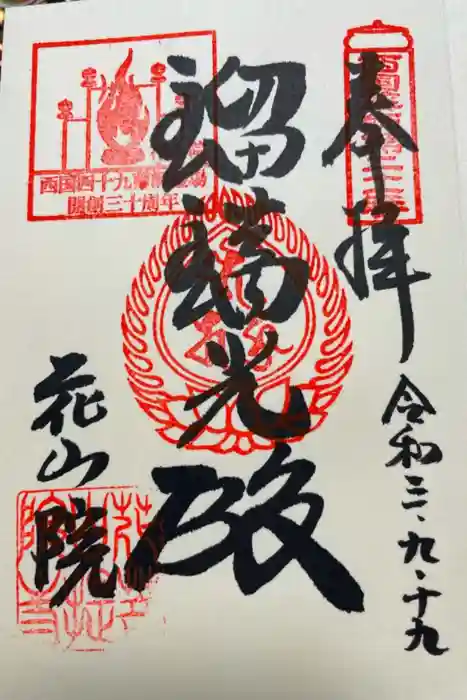 奉拝
令和三.九.十九
瑠璃光殿
花山院
西国四十九薬師霊場
開創三十周年